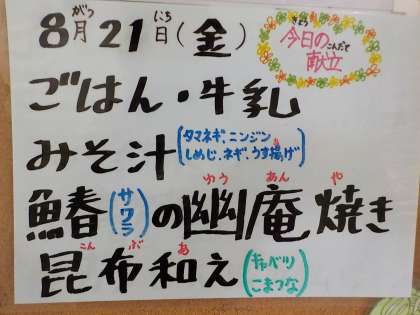 8月21日(金)
がつ にち
今日の献立
きょう こんだて
ごはん・牛乳
みそ汁(タマネギ、ニンジン
しめじ、ネギ、うす揚げ)
ゆう あん や
鰆(サワラ)の幽庵焼き
こん ぶ あ
昆布和え(キャベツ
こまつな)